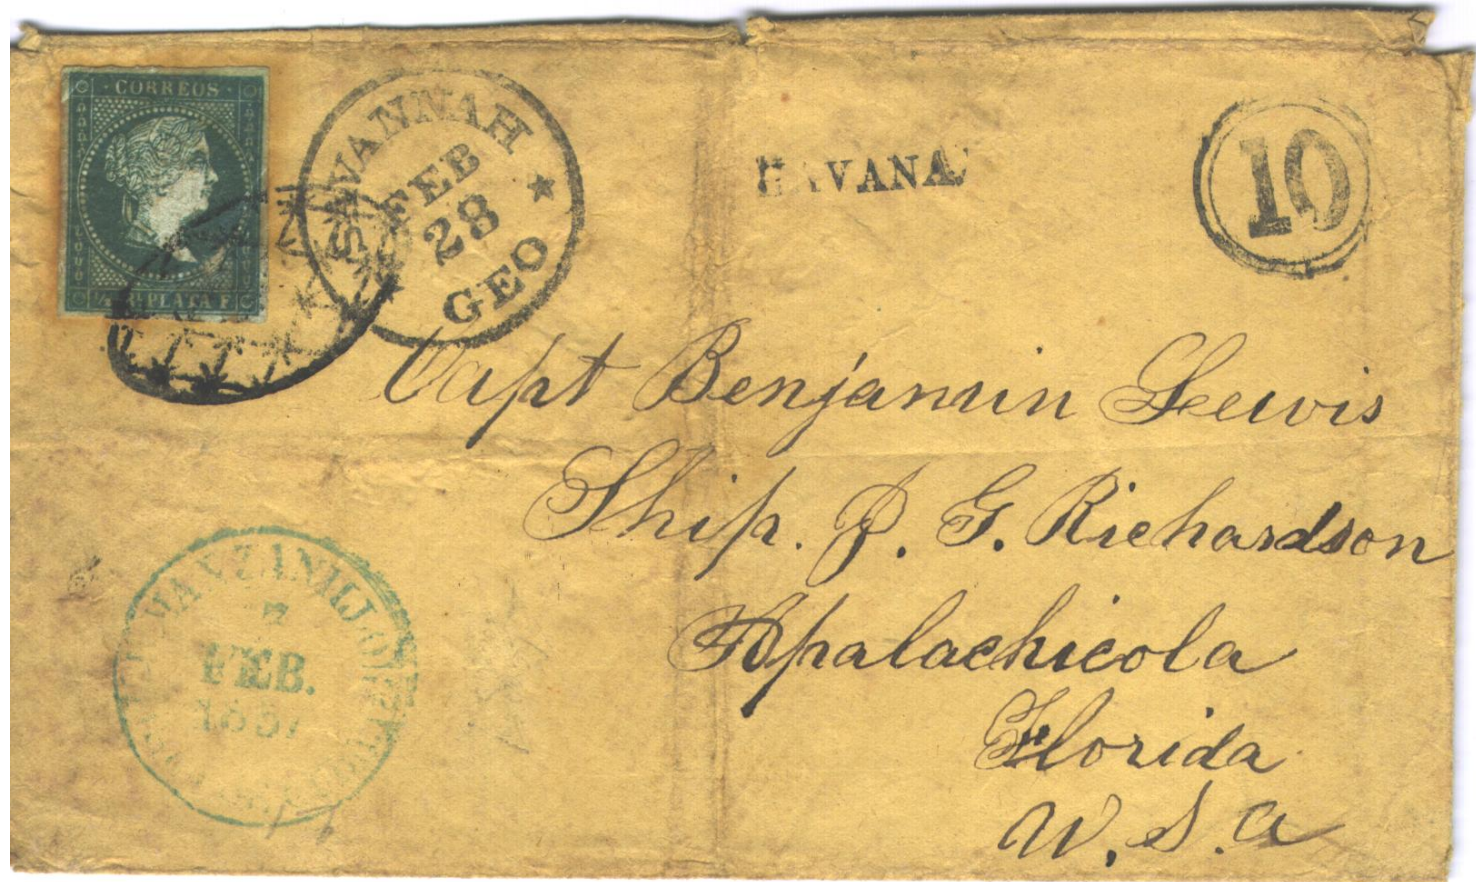 CORREOS
PLATA F
SAVANNAH
FEB
28
GEO
HAVANA
10
Capt Benjamin Leewis
Ship. J. G. Richardson
Apalachicola
Florida
U. S. a
MANZANILLO
7
FEB.
1857